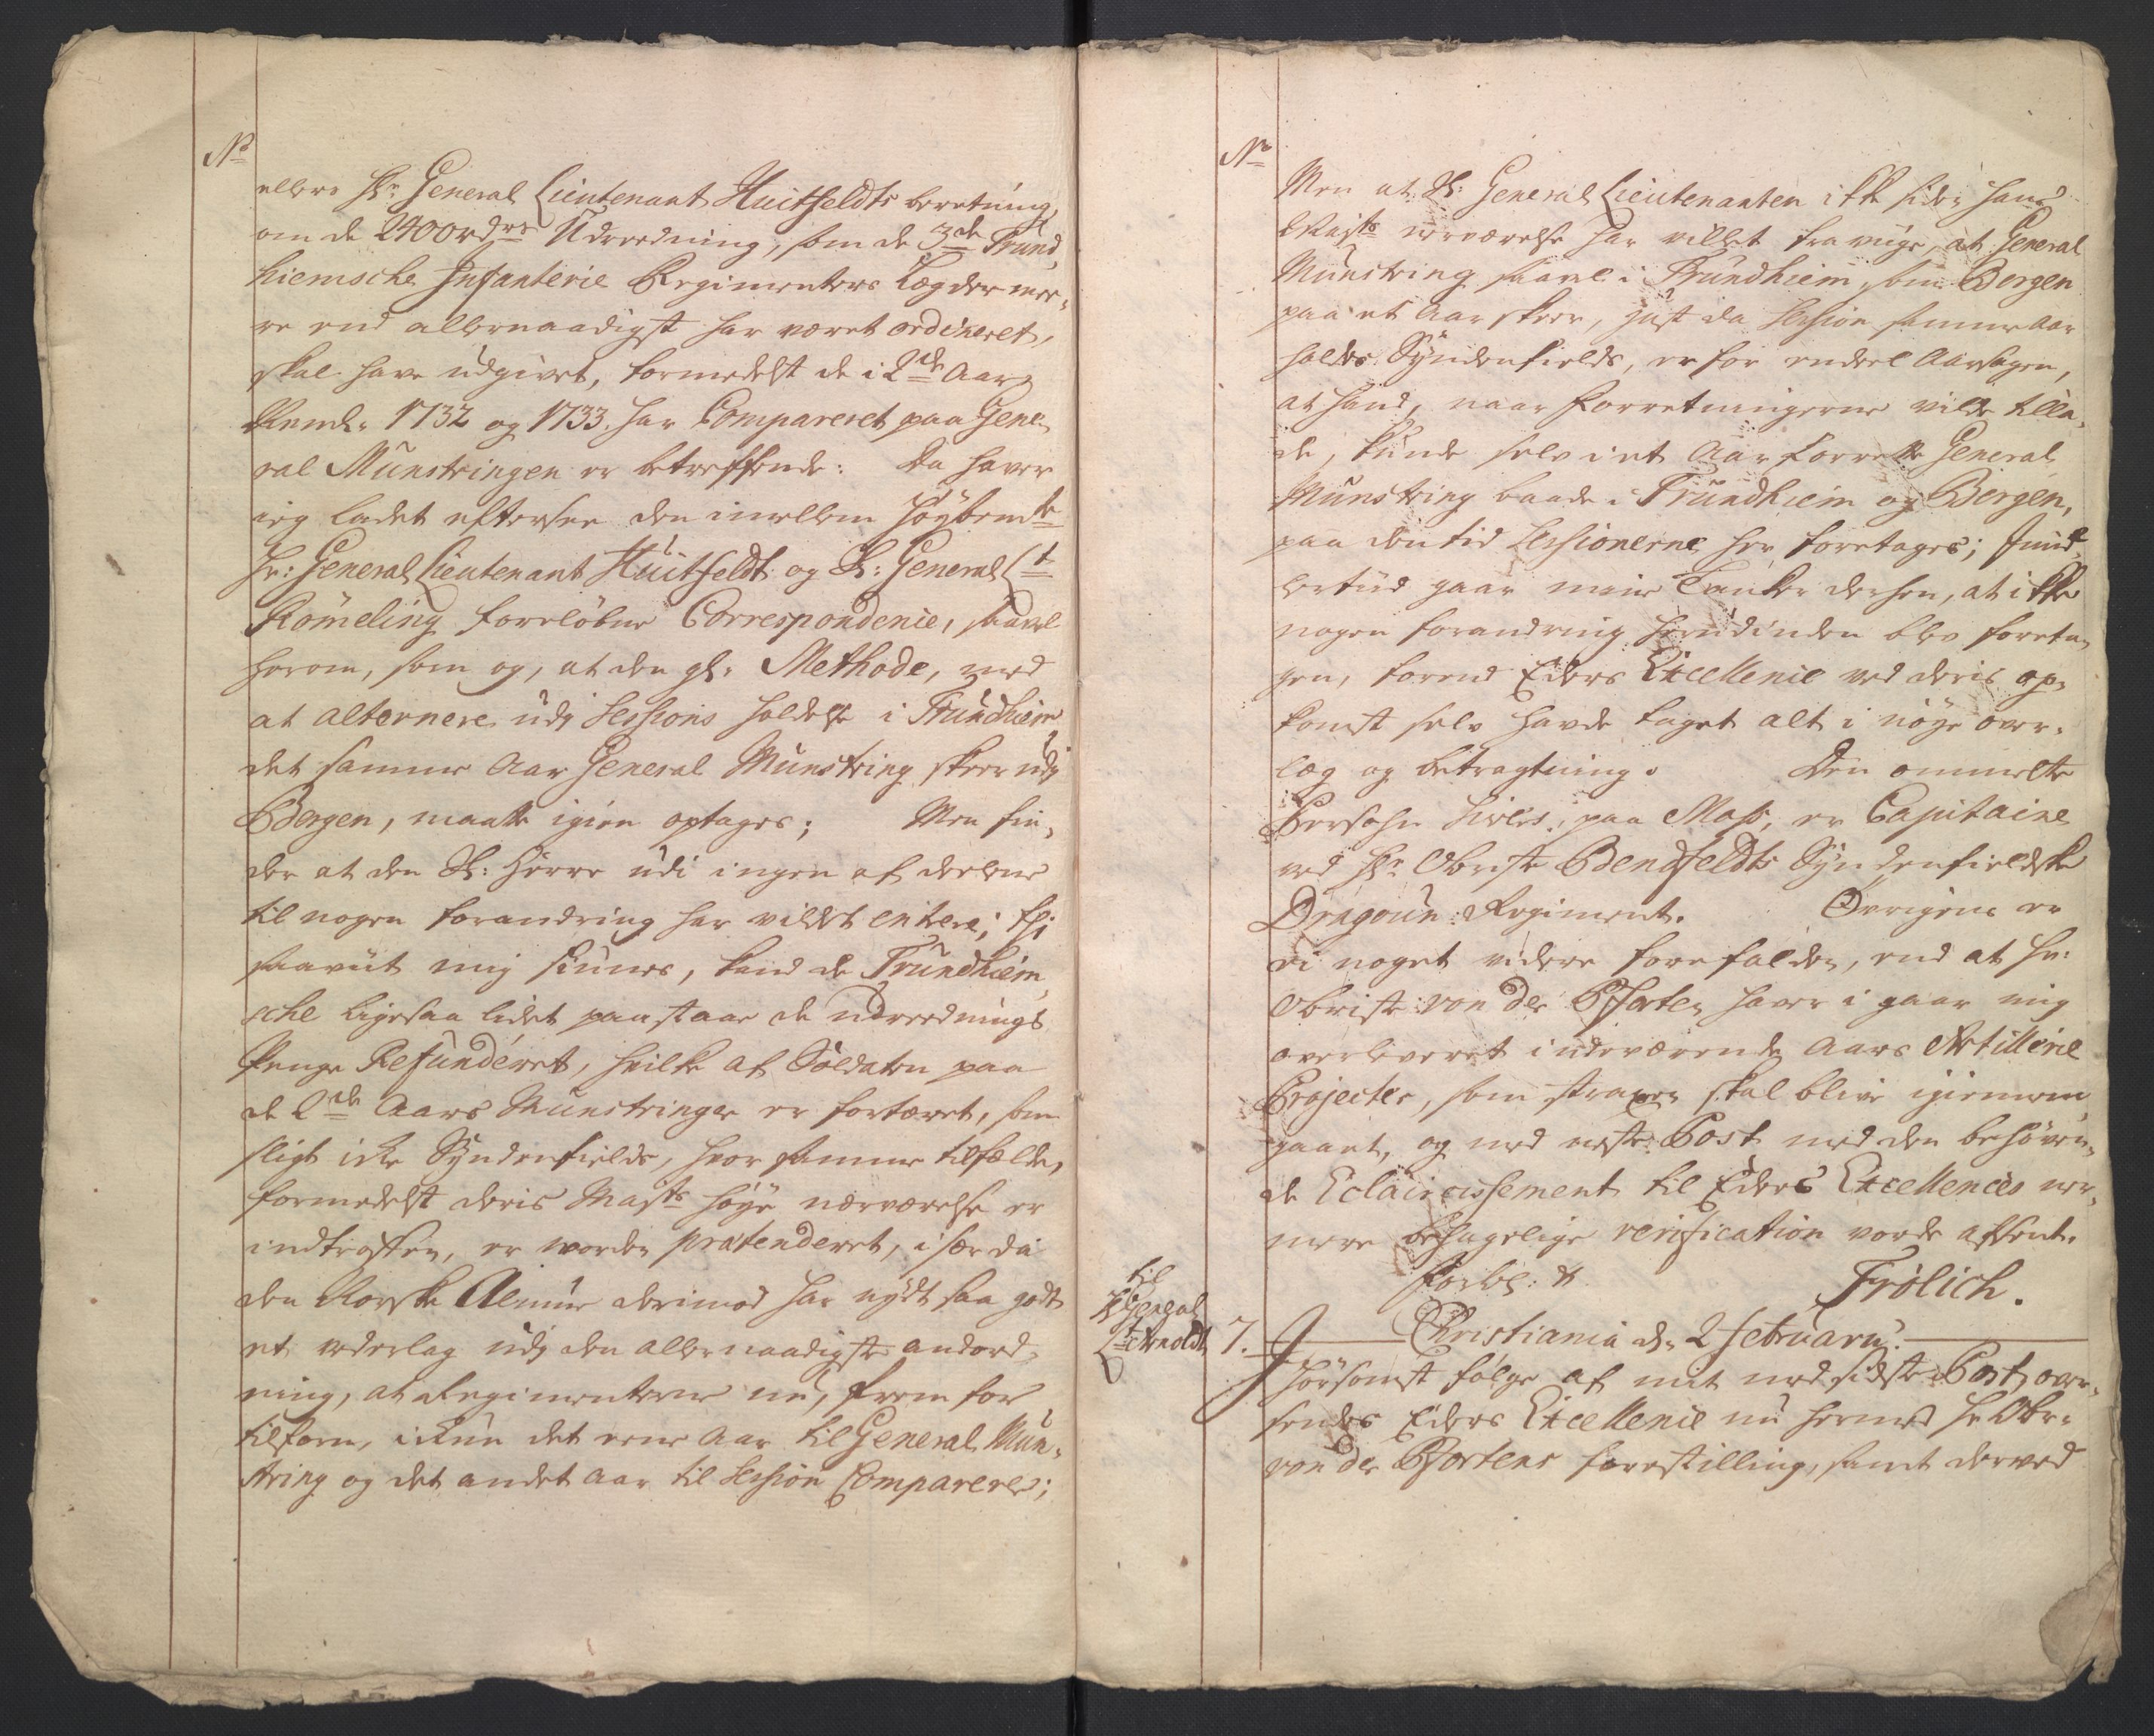 No
ellers Hr. General Lieutenant Huitfeldts beretning
om de 2400 rdrs Udreedning, som de 3de Trund,
hiemsche Infanterie Regimenters Lægder mee,
re end allernaadigst har været ordineret,
skal have udgivet, formedelst de i 2de Aar
1732 og 1733 har Compareret paa Gene,
ral Munstringen er betreffende: Da haver
ieg ladet eftersee den imellem Høybemte
Hr: General Lieutenant Huitfeldt og H: General Lt
Römeling foreløbne Correspondence, saavel
herom, som og, at den gl. Methode, med
at alternere udj Sessions holdelse i Trundhiem
det samme Aar General Munstring skeer udj
Bergen, maatte igien optages; Men fin,
der at den H: Herre udi ingen af deelene
til nogen forandring har villet entere; thi
saavit mig siunes, kand de Trundhiem,
sche ligesaa lidet paastaae de udreednings
Penge Refunderet, hvilke af Soldaten paa
de 2de Aars Munstringer er fortæret, som
sligt icke Syndenfields, hvor samme tilfælde,
formedelst deris Majts høye nærværelse er
indtroffen, er worden prætenderet, i sær da
den Norske Almue derimod har nydt saa godt
et vederlag udj den allernaadigste anord,
ning, at Regimenterne nu, frem for
tilforn, ickun det eene Aar til General Mun,
string og det andet Aar til Session Comparerer;
No
Men at H: General Lieutenanten ikke siden hans
Majts nærværelse har villet fravige, at General
Munstring saavel i Trundhiem, som Bergen
paa et Aar skeer, just da Session samme Aar
holdes Syndenfields, er for endeel Aarsagen,
at hand, naar forretningerne vilde tilla,
de, kunde selv i et Aar forrette General
Munstring baade i Trundhiem og Bergen,
paa den tid Sessionerne her foretages; Imid,
lertiid gaar mine Tanker derhen, at ikke
nogen forandring herudinden blev foreta,
gen, førend Eders Excellence ved deris op,
komst selv havde taget alt i nøye over,
læg og betragtning. Den ommelte
Persohn paa Moss, er Capitaine
ved Hr Obriste Bendfeldts Syndenfieldske
Dragoun Regiment. Øvrigens er
ei noget videre forefalden, end at Hr:
Obriste von der Pforten haver i gaar mig
overleveret indeværende Aars Artillerie
Projecter, som straxen skal blive igiennem,
gaaet, og med neste Post med den behøven,
de Eclaircissement til Eders Excellences nær,
mere behagelige verification vorde afsent.
Forbl: &
Frölich.
til
H General
Lt Arnoldt
7. Christiania d. 2 Februarii.
I hørsomst følge af mit med sidste Post over,
sendes Eders Excellence nu hermed Hr Obr:
von der Pfortens forestilling, samt derved